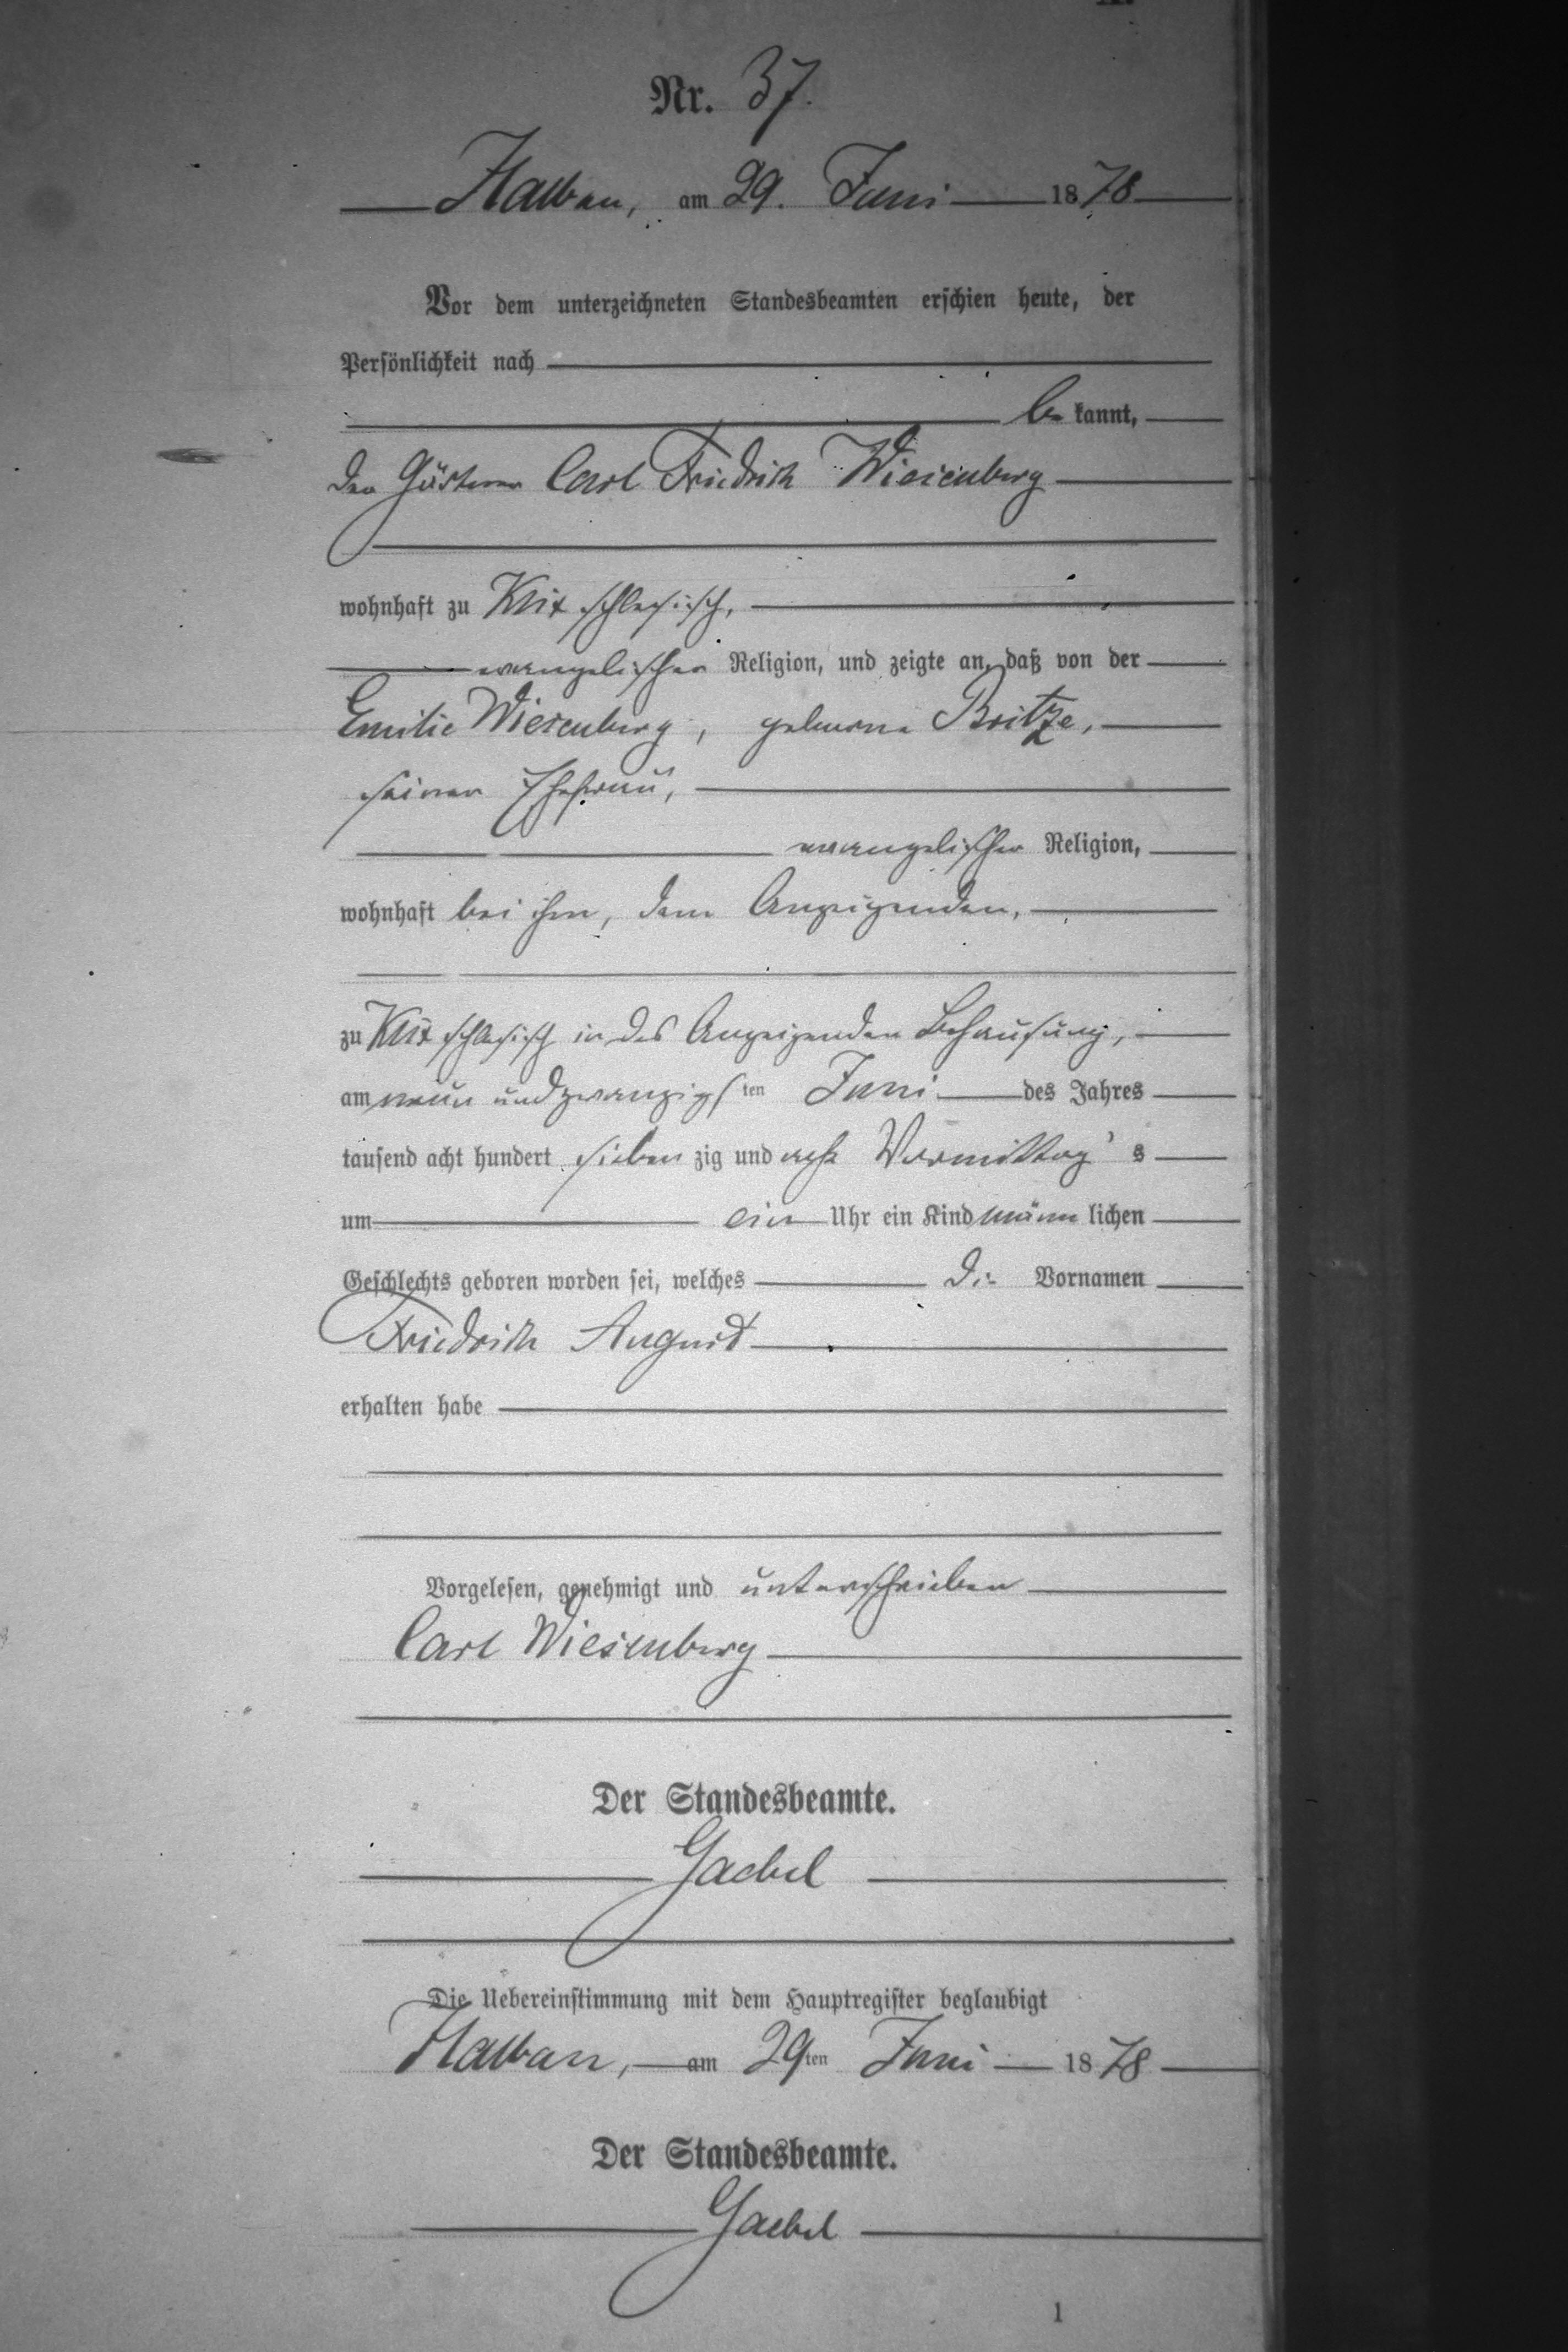 Nr. 37.
Halbau, am 29. Juni 1878
Vor dem unterzeichneten Standesbeamten erschien heute, der
Persönlichkeit nach
be kannt,
der Gärtner Carl Friedrich Wiesenberg
wohnhaft zu Klix schlesisch,
evangelischer Religion, und zeigte an, daß von der
Emilie Wiesenberg, geborne Britze,
seiner Ehefrau,
evangelischer Religion,
wohnhaft bei ihm, dem Anzeigenden,
zu Klix schlesisch in des Anzeigenden Behausung,
am neun und zwanzigsten Juni des Jahres
tausend acht hundert sieben zig und acht Vormittag's
um ein Uhr ein Kind männ lichen
Geschlechts geboren worden sei, welches die Vornamen
Friedrich August
erhalten habe
Vorgelesen, genehmigt und unterschrieben
Carl Wiesenberg
Der Standesbeamte.
Gaebel
Die Uebereinstimmung mit dem Hauptregister beglaubigt
Halbau, am 29ten Juni 1878
Der Standesbeamte.
Gaebel
1